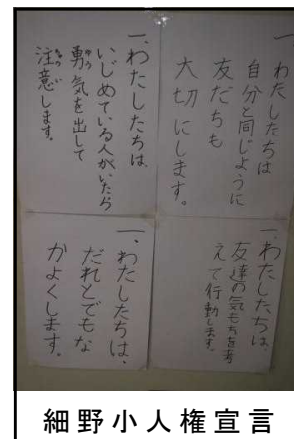 一、わたしたちは
自分と同じように
友だちも
大切にします。
一、わたしたちは
いじめている人がいたら
勇気を出して
注意します。
一、わたしたちは
友達の気もちを考
えて行動します。
一、わたしたちは、
だれとでもな
かよくします。
細野小人権宣言